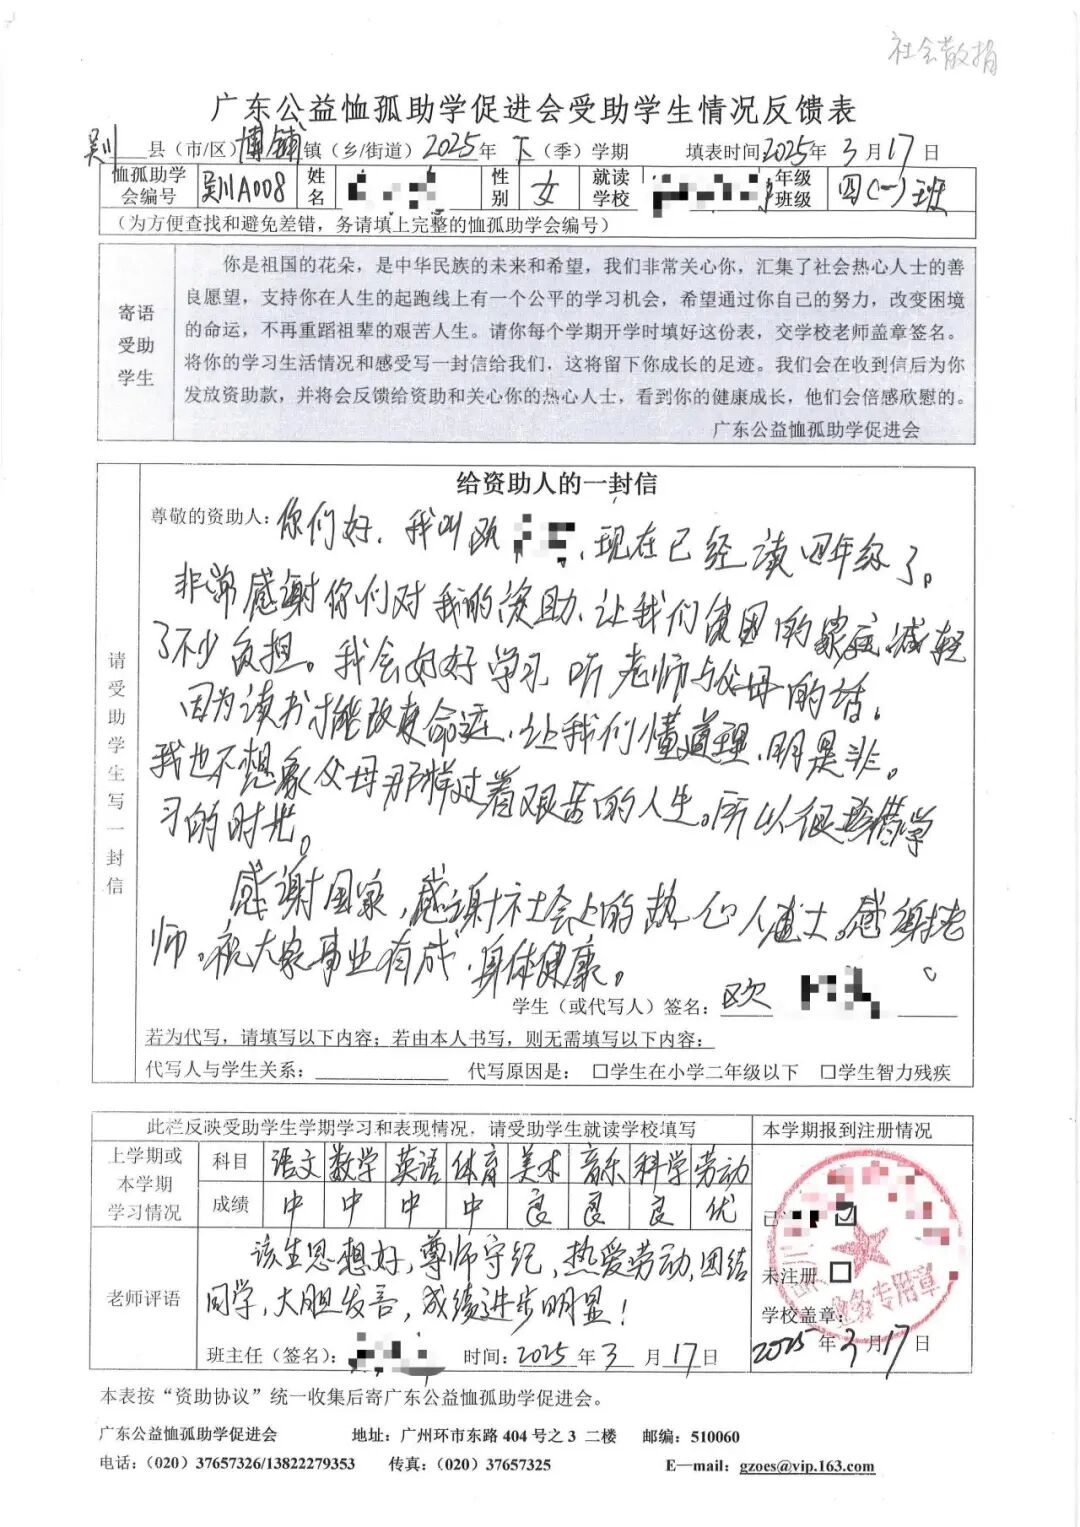 社会散捐
广东公益恤孤助学促进会受助学生情况反馈表
吴川县（市/区）博铺镇（乡/街道）2025年下（季）学期 填表时间2025年3月17日
恤孤助学会编号 吴川A008 姓名 性别 女 就读学校 年级班级 四(一)班
（为方便查找和避免差错，务请填上完整的恤孤助学会编号）
寄语受助学生
你是祖国的花朵，是中华民族的未来和希望，我们非常关心你，汇集了社会热心人士的善
良愿望，支持你在人生的起跑线上有一个公平的学习机会，希望通过你自己的努力，改变困境
的命运，不再重蹈祖辈的艰苦人生。请你每个学期开学时填好这份表，交学校老师盖章签名。
将你的学习生活情况和感受写一封信给我们，这将留下你成长的足迹。我们会在收到信后为你
发放资助款，并将会反馈给资助和关心你的热心人士，看到你的健康成长，他们会倍感欣慰的。
广东公益恤孤助学促进会
请受助学生写一封信
给资助人的一封信
尊敬的资助人：你们好，我叫欧，现在已经读四年级了。
非常感谢你们对我的资助、让我们贫困的家庭减轻
了不少负担。我会好好学习，听老师与父母的话。
因为读书才能改变命运，让我们懂道理、明是非。
我也不想象父母那样过着艰苦的人生。所以很珍惜学
习的时光。
感谢国家，感谢社会上的热心人士。感谢老
师。祝大家事业有成，身体健康。
学生（或代写人）签名：欧
若为代写，请填写以下内容；若由本人书写，则无需填写以下内容：
代写人与学生关系： 代写原因是： □学生在小学二年级以下 □学生智力残疾
此栏反映受助学生学期学习和表现情况，请受助学生就读学校填写 本学期报到注册情况
上学期或本学期学习情况
科目 语文 数学 英语 体育 美术 音乐 科学 劳动
成绩 中 中 中 中 良 良 良 优
老师评语
该生思想好，尊师守纪，热爱劳动，团结
同学，大胆发言，成绩进步明显！
班主任（签名）： 时间：2025年3月17日
已 ☑
未注册 □
学校盖章：
业务专用章
2025年3月17日
本表按“资助协议”统一收集后寄广东公益恤孤助学促进会。
广东公益恤孤助学促进会 地址：广州环市东路 404 号之 3 二楼 邮编：510060
电话：（020）37657326/13822279353 传真：（020）37657325 E—mail：gzoes@vip.163.com